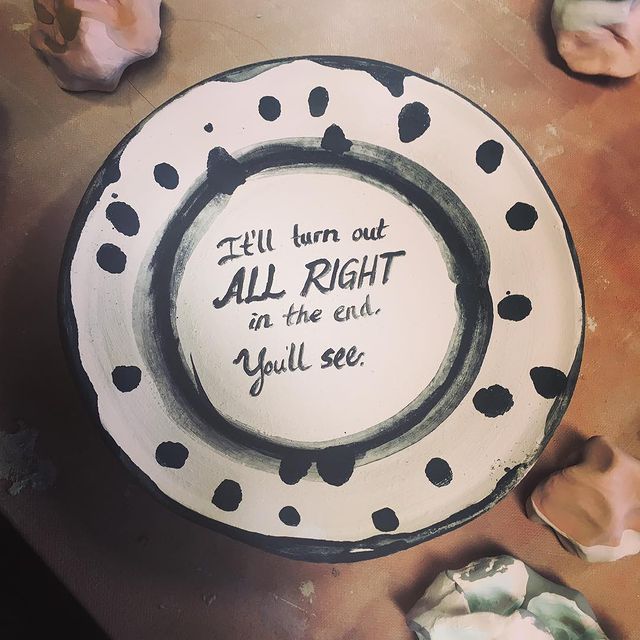 It'll turn out
ALL RIGHT
in the end.
You'll see.